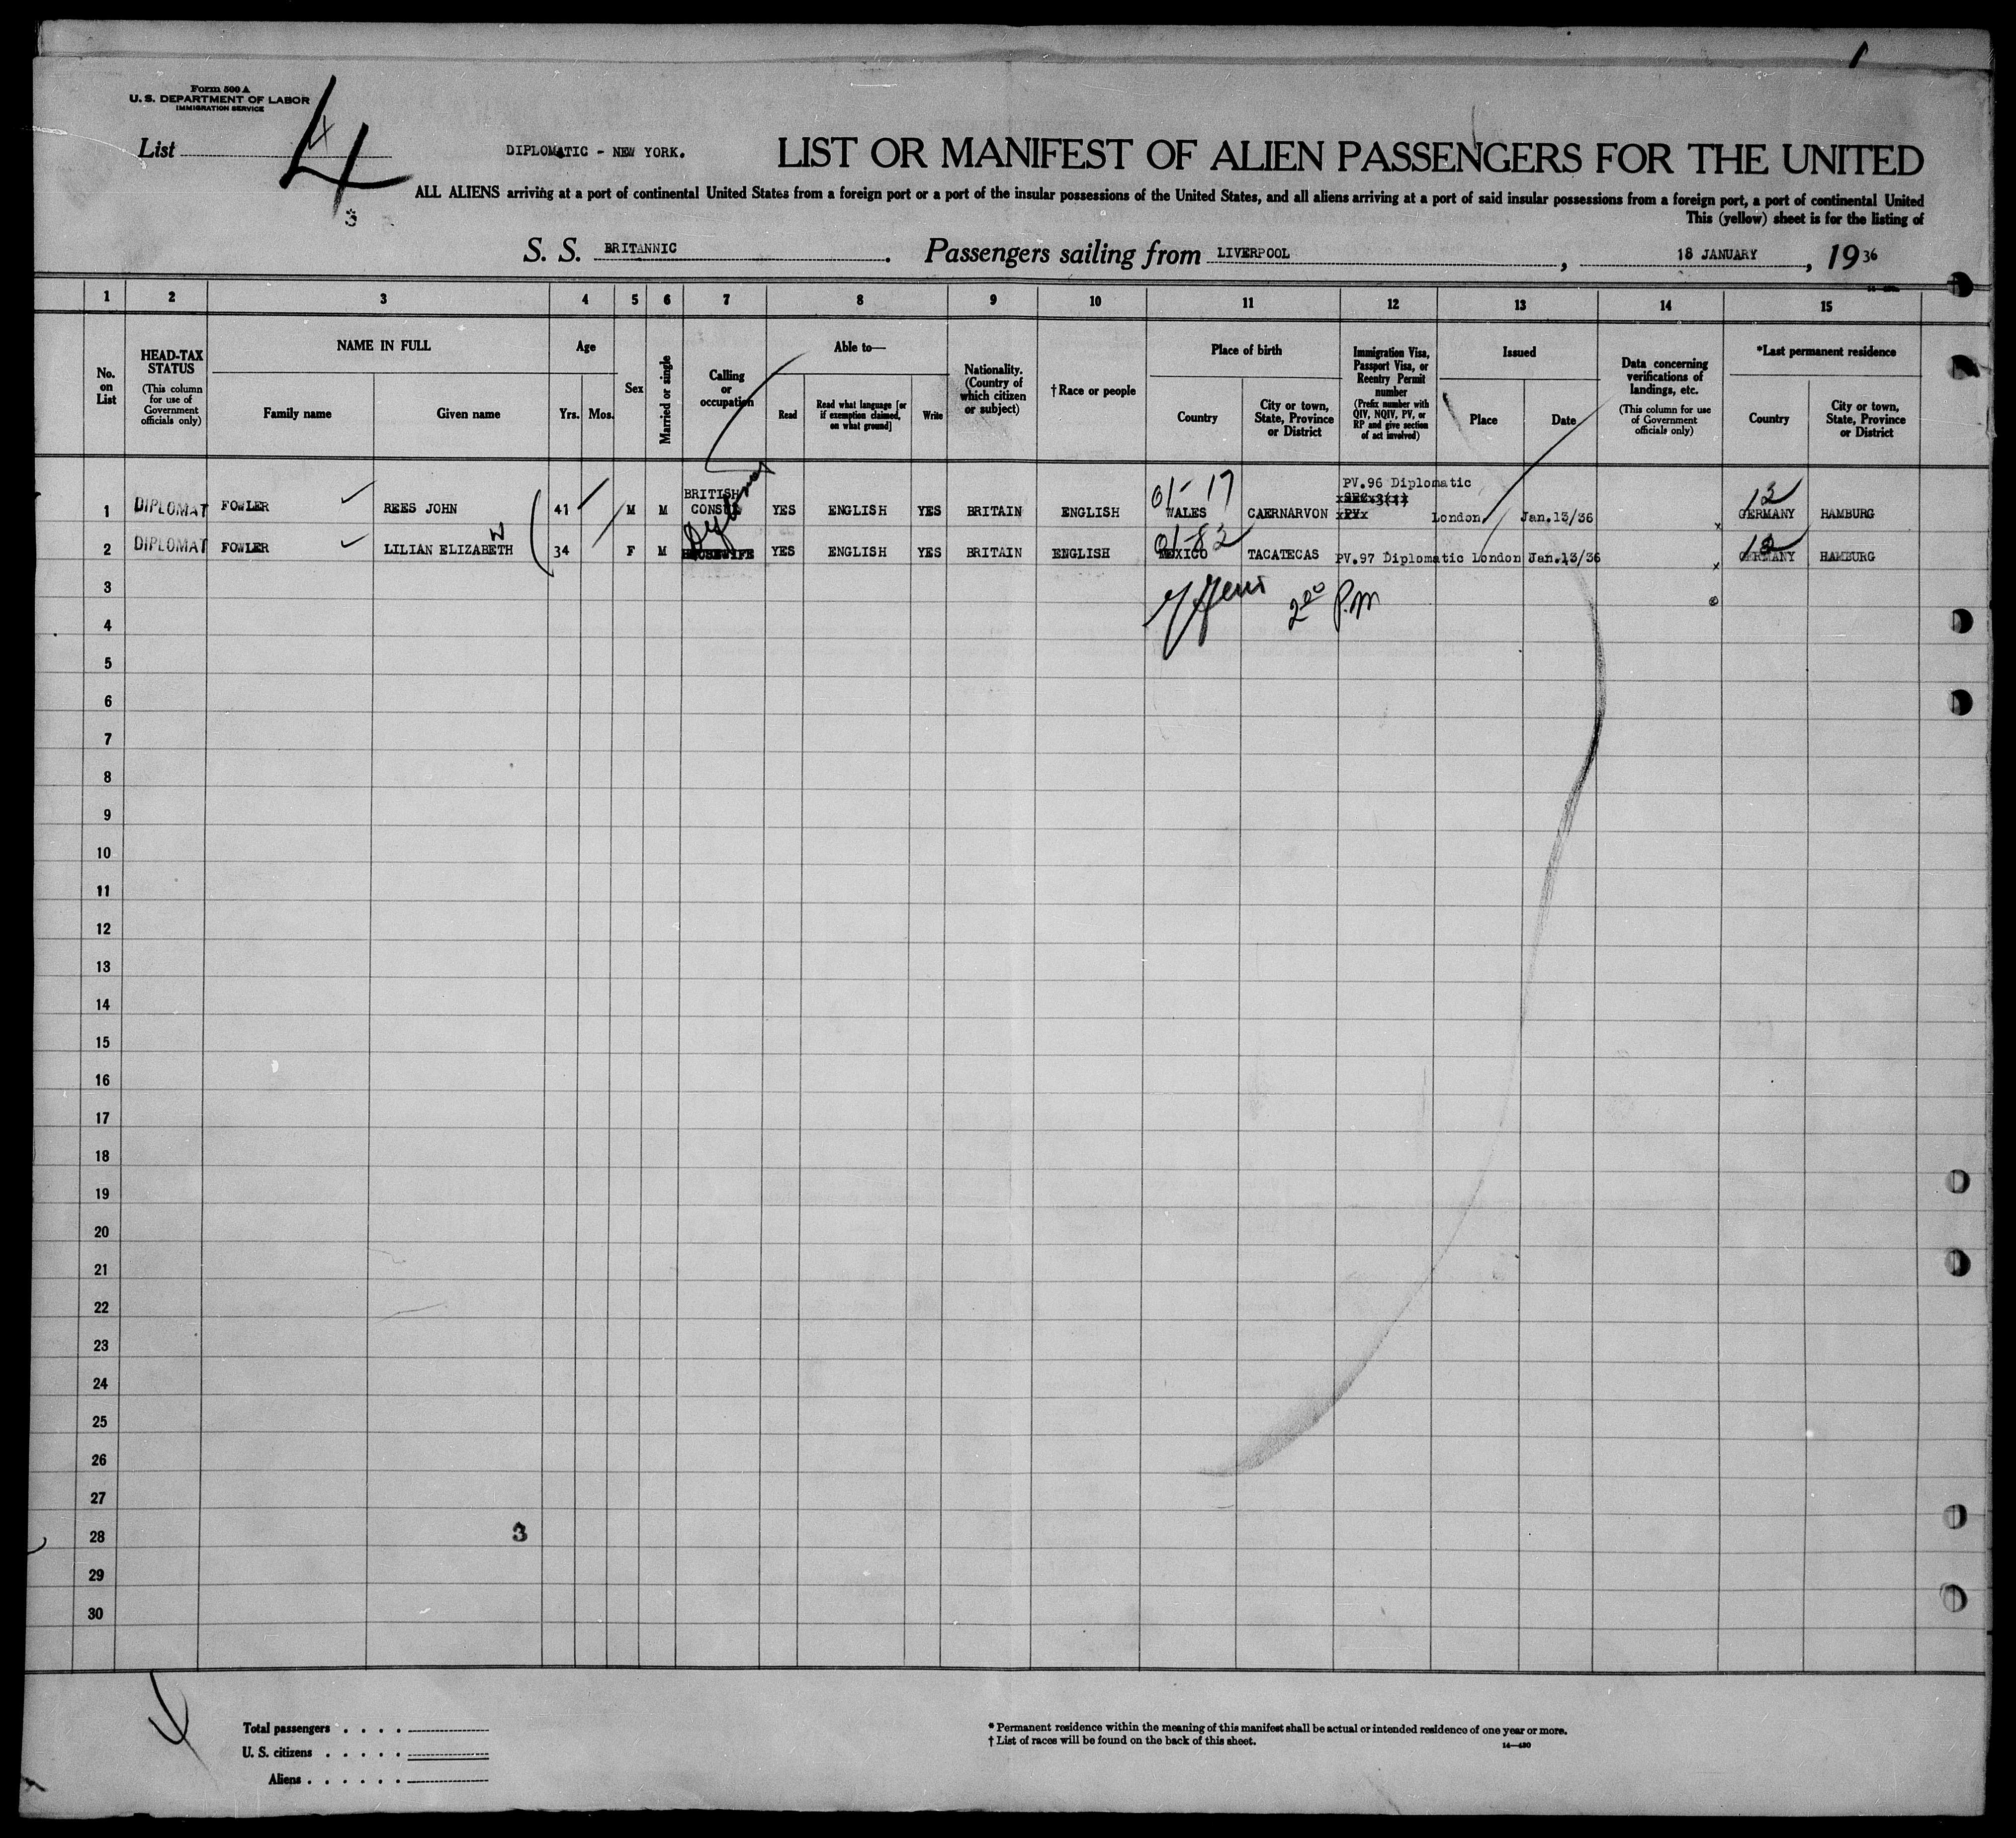 1
Form 500 A
U. S. DEPARTMENT OF LABOR
IMMIGRATION SERVICE
List 4
4
3
DIPLOMATIC - NEW YORK.
LIST OR MANIFEST OF ALIEN PASSENGERS FOR THE UNITED
ALL ALIENS arriving at a port of continental United States from a foreign port or a port of the insular possessions of the United States, and all aliens arriving at a port of said insular possessions from a foreign port, a port of continental United
This (yellow) sheet is for the listing of
S. S. BRITANNIC. Passengers sailing from LIVERPOOL, 18 JANUARY, 19 36
1 2 3 4 5 6 7 8 9 10 11 12 13 14 15
No. on List
HEAD-TAX STATUS
(This column for use of Government officials only)
NAME IN FULL
Family name
Given name
Age
Yrs.
Mos.
Sex
Married or single
Calling or occupation
Able to—
Read
Read what language [or if exemption claimed, on what ground]
Write
Nationality. (Country of which citizen or subject)
†Race or people
Place of birth
Country
City or town, State, Province or District
Immigration Visa, Passport Visa, or Reentry Permit number
(Prefix number with QIV, NQIV, PV, or RP and give section of act involved)
Issued
Place
Date
Data concerning verifications of landings, etc.
(This column for use of Government officials only)
*Last permanent residence
Country
City or town, State, Province or District
01-17
PV.96 Diplomatic
SEC.3(1)
12
1 DIPLOMAT FOWLER REES JOHN 41 M M BRITISH CONSUL YES ENGLISH YES BRITAIN ENGLISH WALES CAERNARVON PV London Jan.13/36 x GERMANY HAMBURG
W
01-82
12
2 DIPLOMAT FOWLER LILIAN ELIZABETH 34 F M HOUSEWIFE YES ENGLISH YES BRITAIN ENGLISH MEXICO TACATECAS PV.97 Diplomatic London Jan.13/36 x GERMANY HAMBURG
3
2 00 P.M
4
5
6
7
8
9
10
11
12
13
14
15
16
17
18
19
20
21
22
23
24
25
26
27
28 3
29
30
Total passengers . . . .
U. S. citizens . . . . .
Aliens . . . . . .
* Permanent residence within the meaning of this manifest shall be actual or intended residence of one year or more.
† List of races will be found on the back of this sheet.
14—430